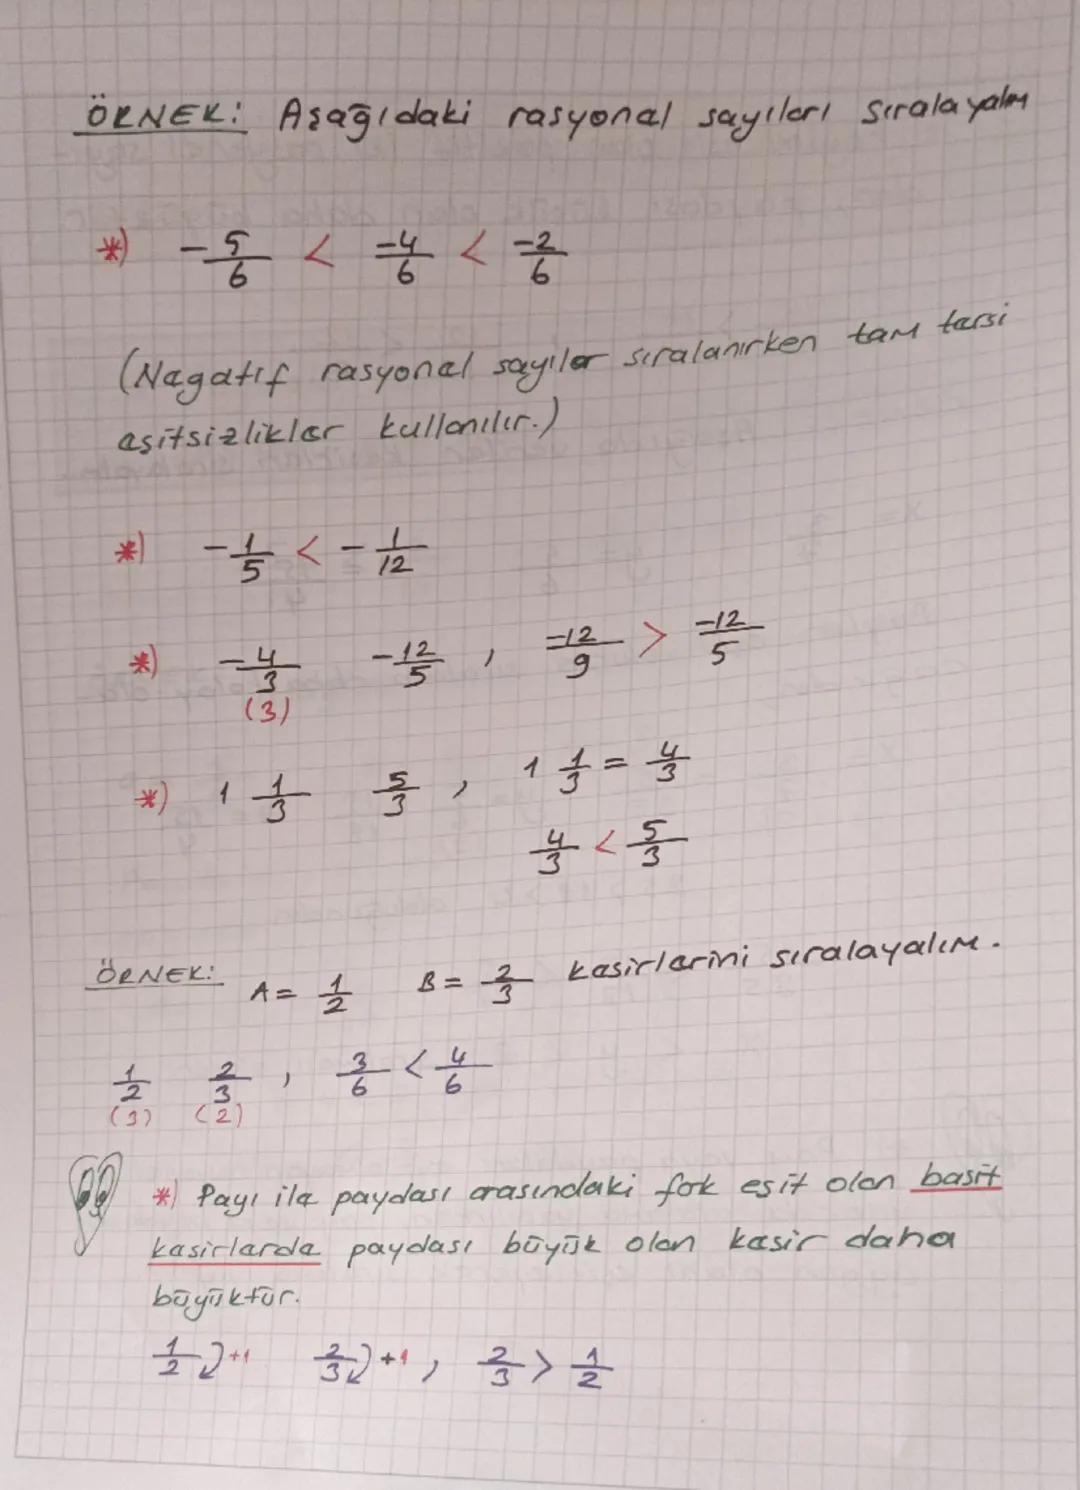 ÖRNEK: Aşağıdaki rasyonel sayıları sıralayalım
*) -5/6 < -4/6 < -2/6
(Negatif rasyonel sayılar sıralanırken tam tersi
eşitsizlikler kullanılır.)
*) -1/5 < -1/12
*) -4/3 (3) -12/5 , -12/9 > -12/5
*) 1 1/3 5/3 , 1 1/3 = 4/3
4/3 < 5/3
ÖRNEK: A = 1/2 B = 2/3 kesirlerini sıralayalım.
1/2 (3) 2/3 (2) , 3/6 < 4/6
*) Payı ile paydası arasındaki fark eşit olan basit
kesirlerde paydası büyük olan kesir daha
büyüktür.
1/2 +1 2/3 +1 , 2/3 > 1/2